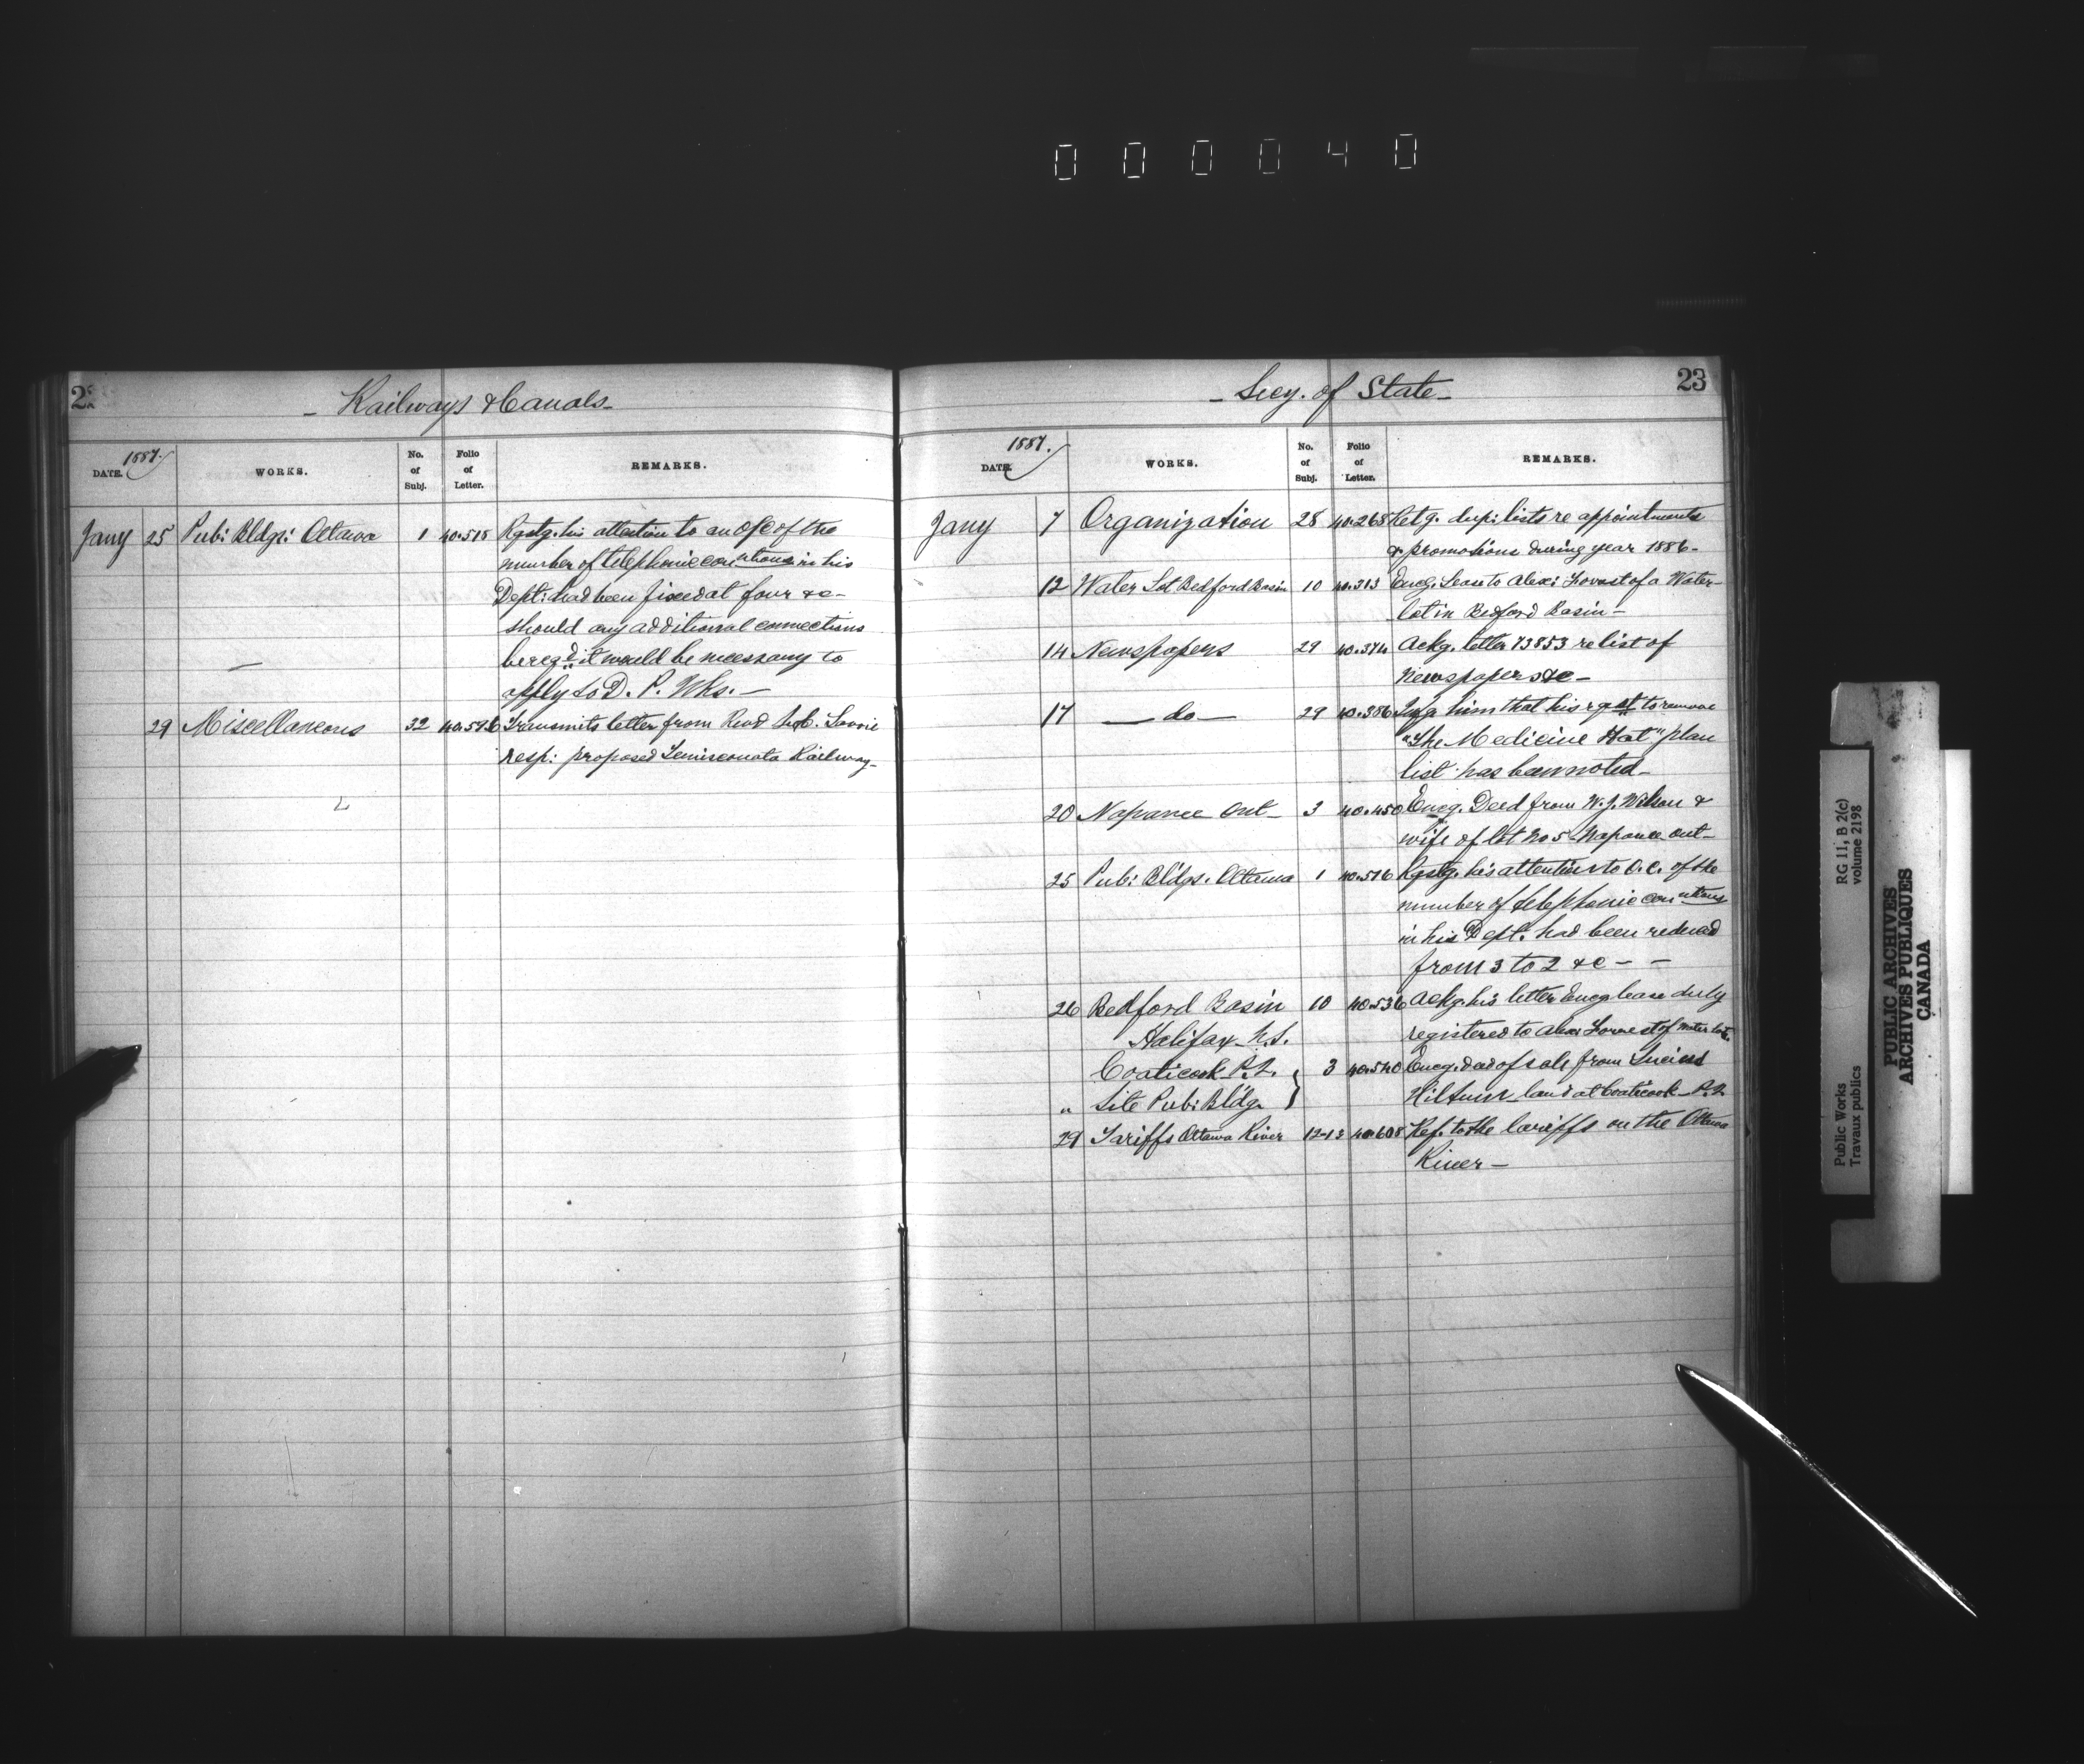 000040
22
- Railways & Canals -
1887.
DATE.
WORKS.
No. of Subj.
Folio of Letter.
REMARKS.
Jany 25 Pub: Bldgs: Ottawa 1 40.518 Rqstg. his attention to an O/C of the
number of telephonic connections in his
Dept: had been fixed at four &c -
should any additional connections
be reqd. it would be necessary to
apply to D. P. Wks. -
29 Miscellaneous 32 40.596 Transmits letter from Revd
resp: proposed Temiscouata Railway -
- Secy. of State -
23
1887.
DATE.
WORKS.
No. of Subj.
Folio of Letter.
REMARKS.
Jany 7 Organization 28 40.268 Retg. dup: lists re appointments
& promotions during year 1886 -
12 Water Lot Bedford Basin 10 40.313 Encg. Lease to Alex: of a Water
lot in Bedford Basin -
14 Newspapers 29 40.374 Ackg. letter 73853 re list of
Newspapers &c -
17 - do - 29 40.386 him that his rqest to remove
"The Medicine Hat"
list has been noted -
20 Napanee Ont - 3 40.450 Encg. Deed from W. J. Wilson &
wife of lot No 5 Napanee Ont -
25 Pub: Bldgs. Ottawa 1 40.516 Rqstg. his attention to O.C. of the
number of telephonic connections
in his Dept. had been reduced
from 3 to 2 &c - -
26 Bedford Basin 10 40.536 Ackg. his letter Encg lease duly
Halifax N.S. registered to Alex of water lot.
Coaticook P.Q. } 3 40.540 Encg. deed of sale from Lucius
" Site Pub: Bldg. Hiltum land at Coaticook P.Q.
29 Tariffs Ottawa River 12-12 40.608 Ref. to the tariffs on the Ottawa
River -
Public Works
Travaux publics
RG 11, B 2(c)
volume 2198
PUBLIC ARCHIVES
ARCHIVES PUBLIQUES
CANADA